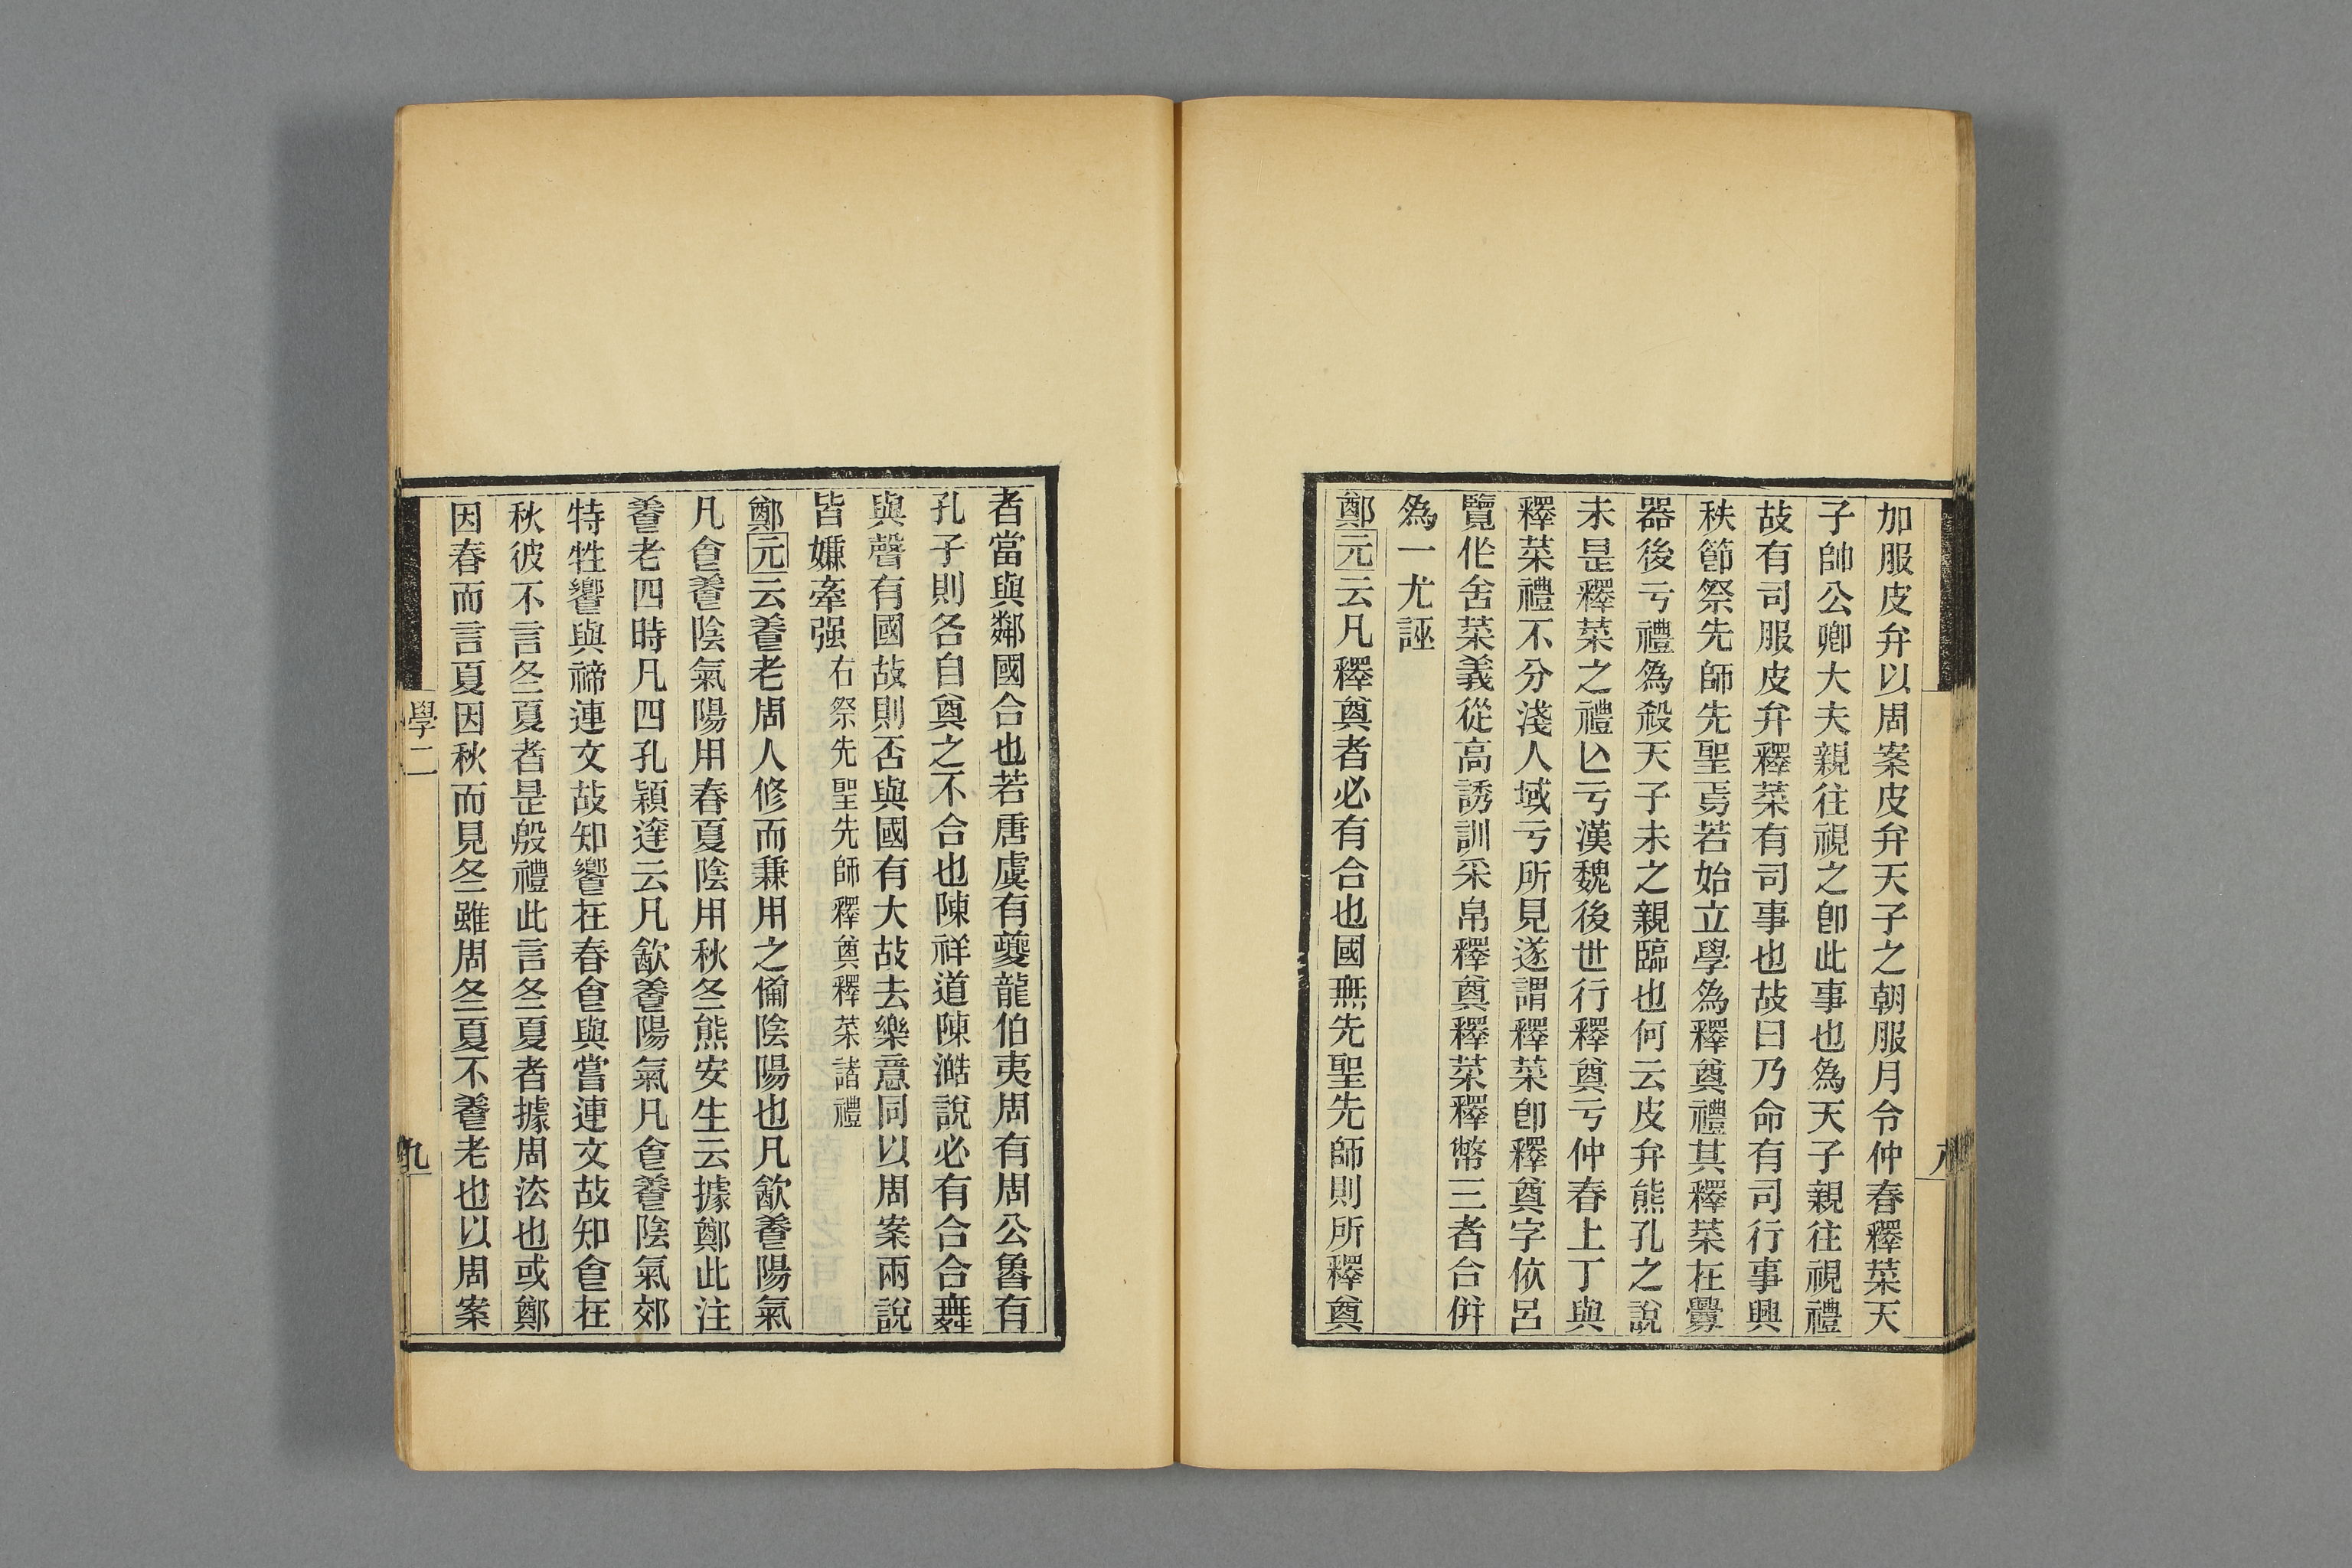 加服皮弁以周案皮弁天子之朝服月令仲春釋菜天
子帥公卿大夫親往視之卽此事也爲天子親往視禮
故有司服皮弁釋菜有司事也故曰乃命有司行事興
秩節祭先師先聖焉若始立學爲釋奠禮其釋菜在釁
器後亏禮爲殺天子未之親臨也何云皮弁熊孔之說
未是釋菜之禮亾亏漢魏後世行釋奠亏仲春上丁與
釋菜禮不分淺人域亏所見遂謂釋菜卽釋奠字依呂
覽作舍菜義從高誘訓采帛釋奠釋菜釋幣三者合併
爲一尤誣
鄭元云凡釋奠者必有合也國無先聖先師則所釋奠
八
者當與鄰國合也若唐虞有夔龍伯夷周有周公魯有
孔子則各自奠之不合也陳祥道陳澔說必有合合舞
與聲有國故則否與國有大故去樂意同以周案兩說
皆嫌牽强右祭先聖先師釋奠釋菜諸禮
鄭元云養老周人修而兼用之僃陰陽也凡飮養陽氣
凡食養陰氣陽用春夏陰用秋冬熊安生云據鄭此注
養老四時凡四孔穎達云凡飮養陽氣凡食養陰氣郊
特牲饗與禘連文故知饗在春食與嘗連文故知食在
秋彼不言冬夏者是殷禮此言冬夏者據周法也或鄭
因春而言夏因秋而見冬雖周冬夏不養老也以周案
學二
九